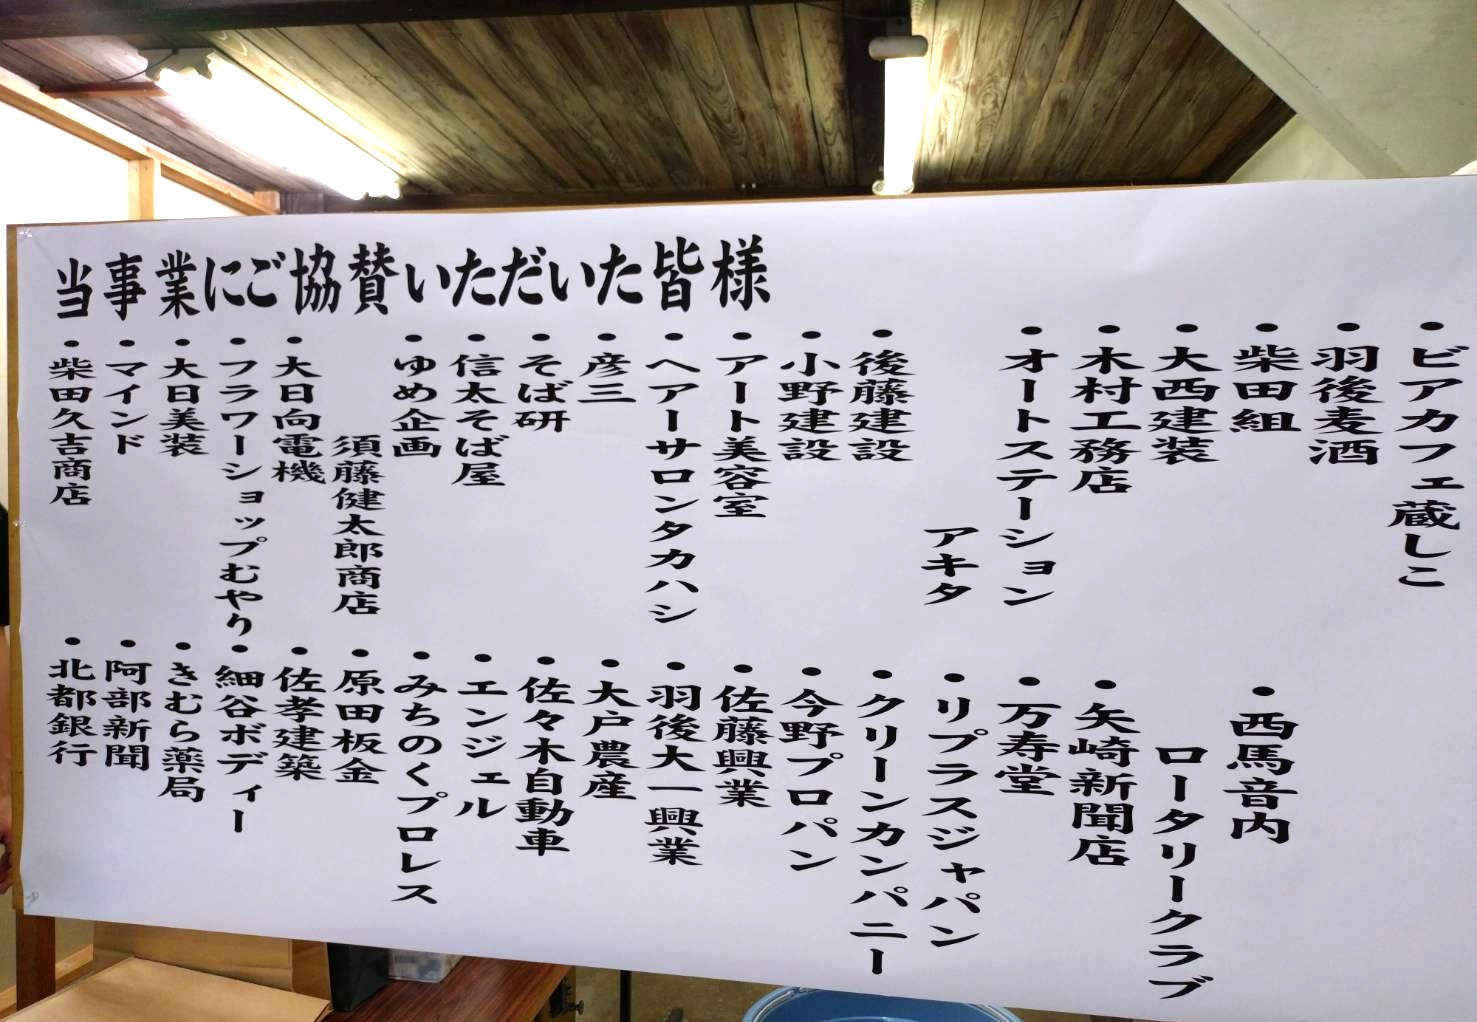 当事業にご協賛いただいた皆様
・ビアカフェ蔵しこ
・羽後麦酒
・柴田組
・大西建装
・木村工務店
・オートステーション
アキタ
・後藤建設
・小野建設
・アート美容室
・ヘアーサロンタカハシ
・彦三
・そば研
・信太そば屋
・ゆめ企画
須藤健太郎商店
・大日向電機
・フラワーショップむやり
・大日美装
・マインド
・柴田久吉商店
・西馬音内
ロータリークラブ
・矢崎新聞店
・万寿堂
・リプラスジャパン
・クリーンカンパニー
・今野プロパン
・佐藤興業
・羽後大一興業
・大戸農産
・佐々木自動車
・エンジェル
・みちのくプロレス
・原田板金
・佐孝建築
・細谷ボディー
・きむら薬局
・阿部新聞
・北都銀行